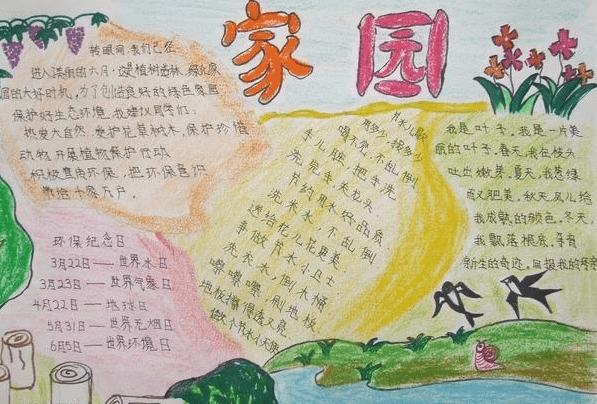 家园
转眼间,我们已经
进入深丽的六月,这是植树造林、绿化家
园的大好时机,为了创造良好的绿色家园
保护好生态环境,我建议同学们:
热爱大自然,爱护花草树木,保护珍惜
动物,开展植物保护行动
积极宣传环保,把环保意识
带给千家万户。
环保纪念日
3月22日——世界水日
3月23日——世界气象日
4月22日——地球日
5月31日——世界无烟日
6月5日——世界环境日
节水儿歌
用多少,接多少
喝不完,不乱倒
手儿脏,把手洗
洗完手,关龙头
节约用水好品质
洗米水,不乱倒
送给花儿花更美
争做节水小卫士
洗完水,倒木桶
唰唰唰,刷地板
地板擦得透又亮
我是叶子,我是一片美
丽的叶子。春天,我在枝头
吐出嫩芽,夏天,我葱绿
而又肥美,秋天,风儿给
我成熟的颜色,冬天,
我飘落根底,孕育
新生的奇迹,回报我的母亲